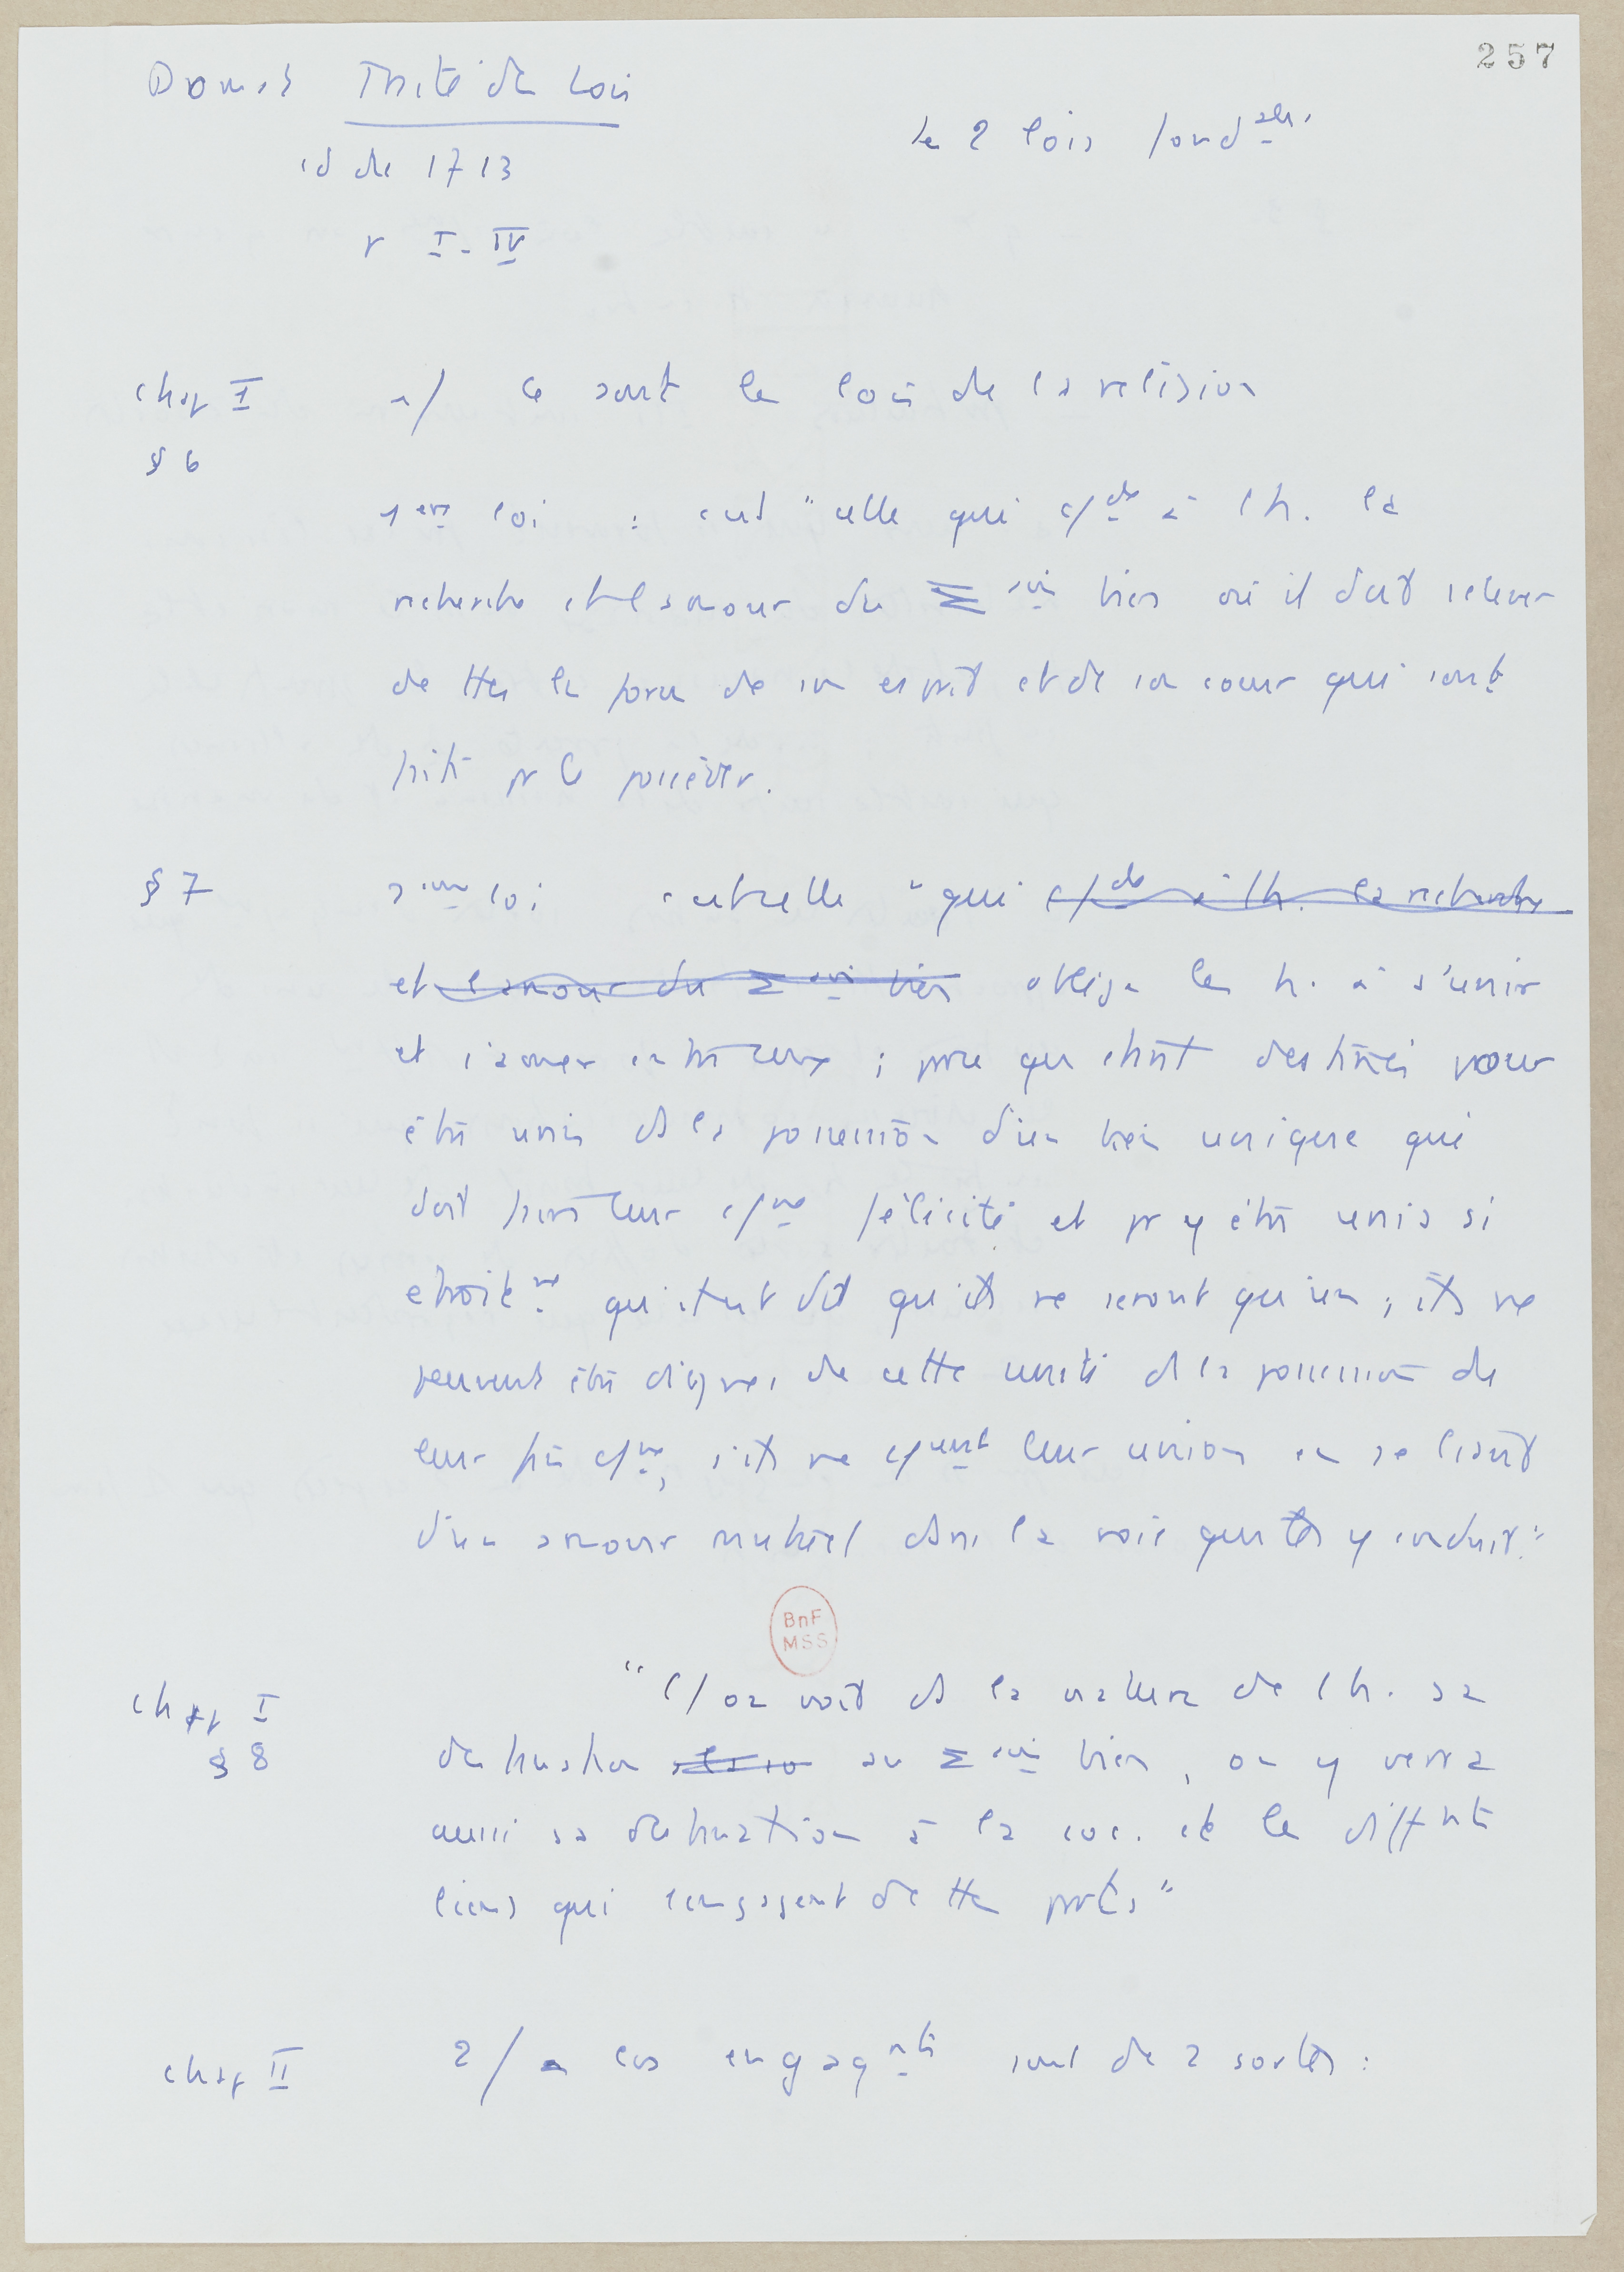 257
Domat Traité des Lois
les 2 lois fondales.
éd de 1713
p I-IV
chap I 1/ Ce sont les lois de la religion
§ 6
1ère loi : c'est "celle qui c/de à l'h. la
recherche et l'amour du Σ ain bien où il doit s'élever
de ttes les forces de son esprit et de son cœur qui sont
faits pr le posséder.
§ 7 2ème loi c'est celle "qui c/de à l'h. la recherche
et l'amour du Σ ain bien oblige les h. à s'unir
et s'aimer entre eux ; parce qu'étant destinés pour
être unis ds la possession d'un bien unique qui
doit faire leur c/ne félicité et pr y être unis si
étroitemt qu'il est dit qu'ils ne seront qu'un ; ils ne
peuvent être dignes de cette unité ds la possession de
leur fin c/ne, s'ils ne c/ncent leur union en se liant
d'un amour mutuel dans la voie qui les y conduit."
BnF
MSS
chap I "C/ on voit ds la nature de l'h. sa
§ 8 destination au Σ ain bien, on y verra
aussi sa destination à la soc. et les différents
liens qui l'engagent de ttes parts"
chap II 2/ Les engagnts sont de 2 sortes :